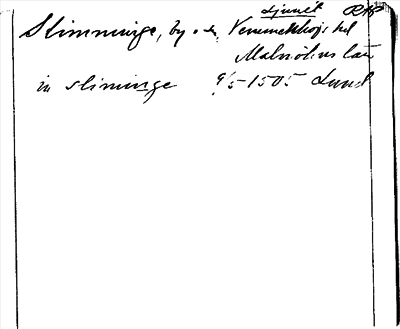 Ljunit RAP
Slimminge, by o. s., Vemmenhögs hd
Malmöhus län
in sliminge 9/5 1505 Lund